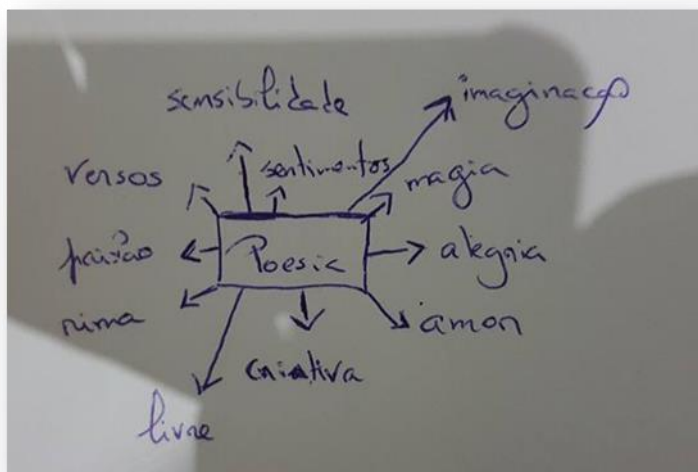 sensibilidade
imaginação
versos
sentimentos
magia
paixão
Poesia
alegria
rima
amor
criativa
livre